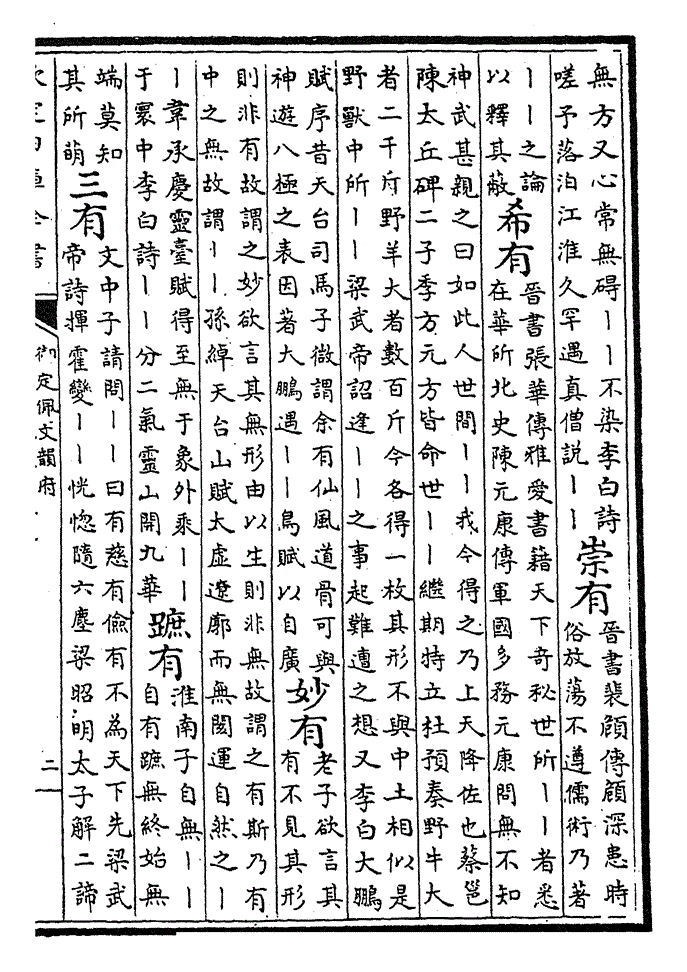 無方又心常無碍丨丨不染李白詩
嗟予落泊江淮久罕遇真僧說丨丨
崇有
晉書裴頠傳頠深患時
俗放蕩不遵儒術乃著
丨丨之論
以釋其蔽
希有
晉書張華傳雅愛書籍天下奇秘世所丨丨者悉
在華所北史陳元康傳軍國多務元康問無不知
神武甚親之曰如此人世間丨丨我今得之乃上天降佐也蔡邕
陳太丘碑二子季方元方皆命世丨丨繼期特立杜預奏野牛大
者二千斤野羊大者數百斤今各得一枚其形不與中土相似是
野獸中所丨丨梁武帝詔逢丨丨之事起難遭之想又李白大鵬
賦序昔天台司馬子微謂余有仙風道骨可與
神遊八極之表因著大鵬遇丨丨鳥賦以自廣
妙有
老子欲言其
有不見其形
則非有故謂之妙欲言其無形由以生則非無故謂之有斯乃有
中之無故謂丨丨孫綽天台山賦太虛遼廓而無閡運自然之丨
丨韋承慶靈臺賦得至無于象外乘丨丨
于寰中李白詩丨丨分二氣靈山開九華
蹠有
淮南子自無丨丨
自有蹠無終始無
端莫知
其所萌
三有
文中子請問丨丨曰有慈有儉有不為天下先梁武
帝詩揮霍變丨丨恍惚隨六塵梁昭明太子解二諦
欽定四庫全書
御定佩文韻府
二